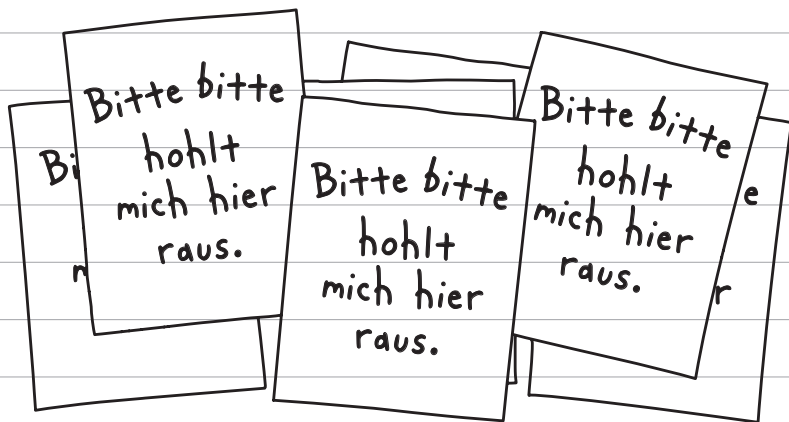 Bitte bitte
hohlt
mich hier
raus.
Bitte bitte
hohlt
mich hier
raus.
Bitte bitte
hohlt
mich hier
raus.
Bi
m
e
r